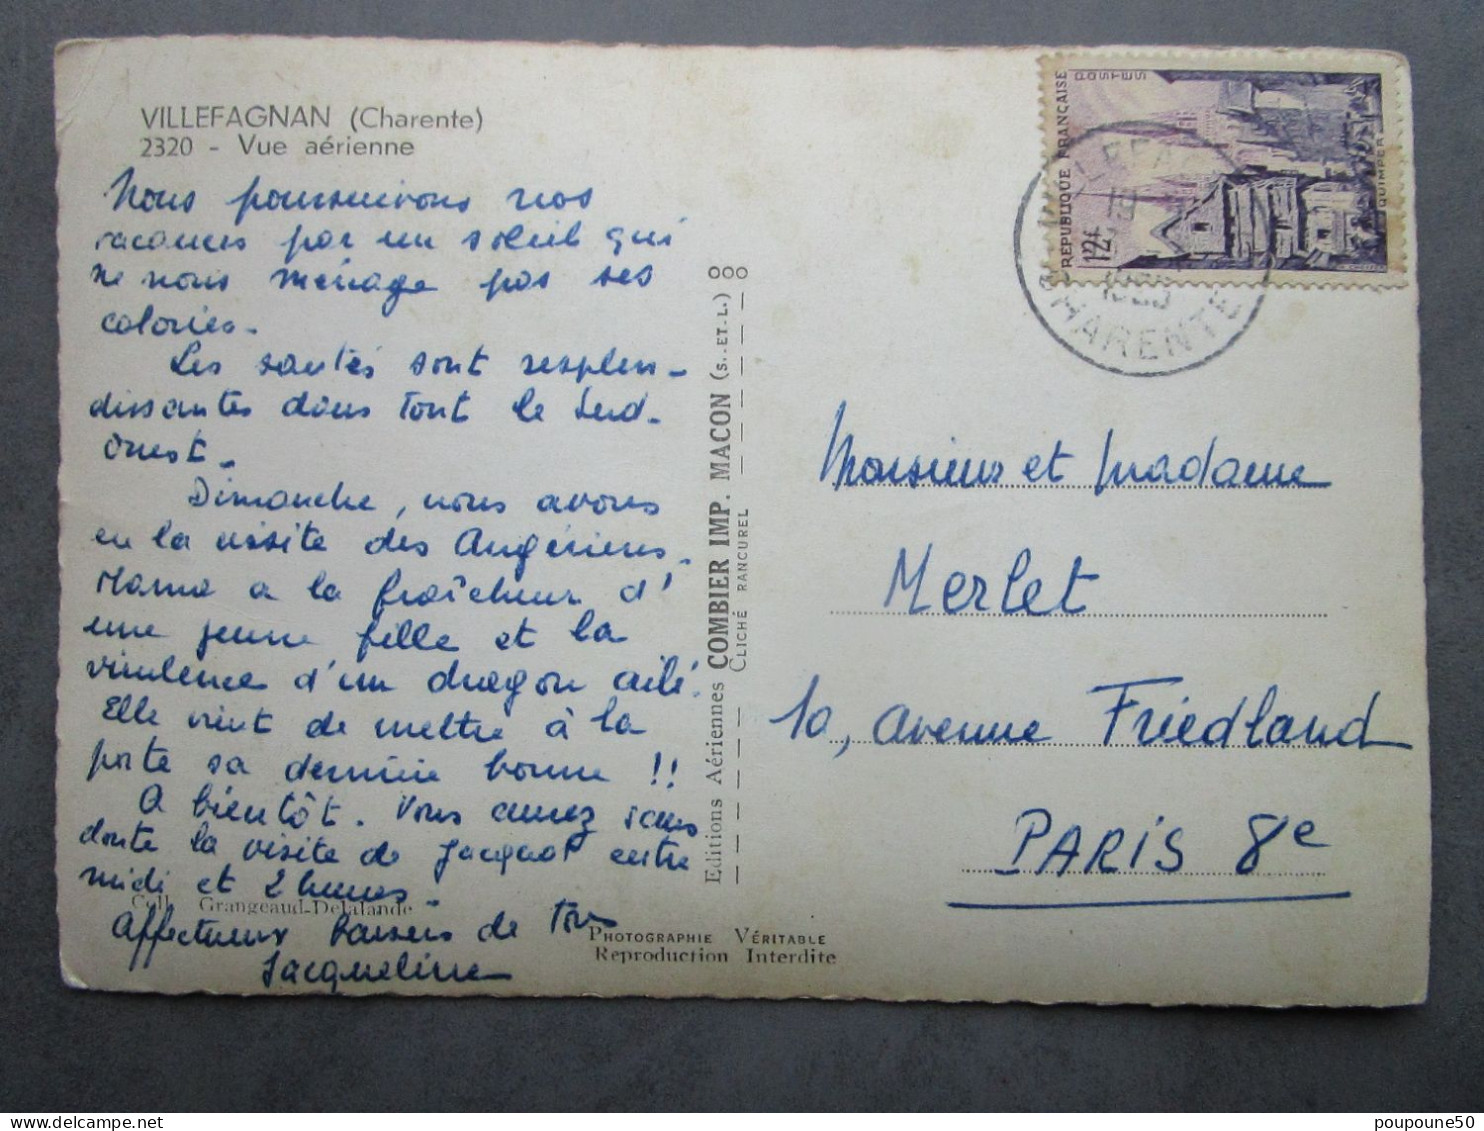 VILLEFAGNAN (Charente)
2320 - Vue aérienne
Nous poursuivons nos
vacances par un soleil qui
ne nous ménage pas ses
calories.
Les santés sont resplen-
dissantes dans tout le Sud-
Ouest.
Dimanche, nous avons
eu la visite des Angériens.
Mama a la fraîcheur d'
une jeune fille et la
virulence d'un dragon ailé.
Elle vient de mettre à la
porte sa dernière bonne !!
A bientôt. Vous aurez sans
doute la visite de Jacquot entre
midi et 2 heures.
Coll. Grangeaud-Delalande
Affectueux baisers de Tous
Jacqueline
PHOTOGRAPHIE VÉRITABLE
Reproduction Interdite
Editions Aériennes COMBIER IMP. MACON (S.-ET-L.)
CLICHÉ RANCUREL
RÉPUBLIQUE FRANÇAISE
POSTES
12f
QUIMPER
19
CHARENTE
Monsieur et Madame
Merlet
10, avenue Friedland
PARIS 8e
poupoune50